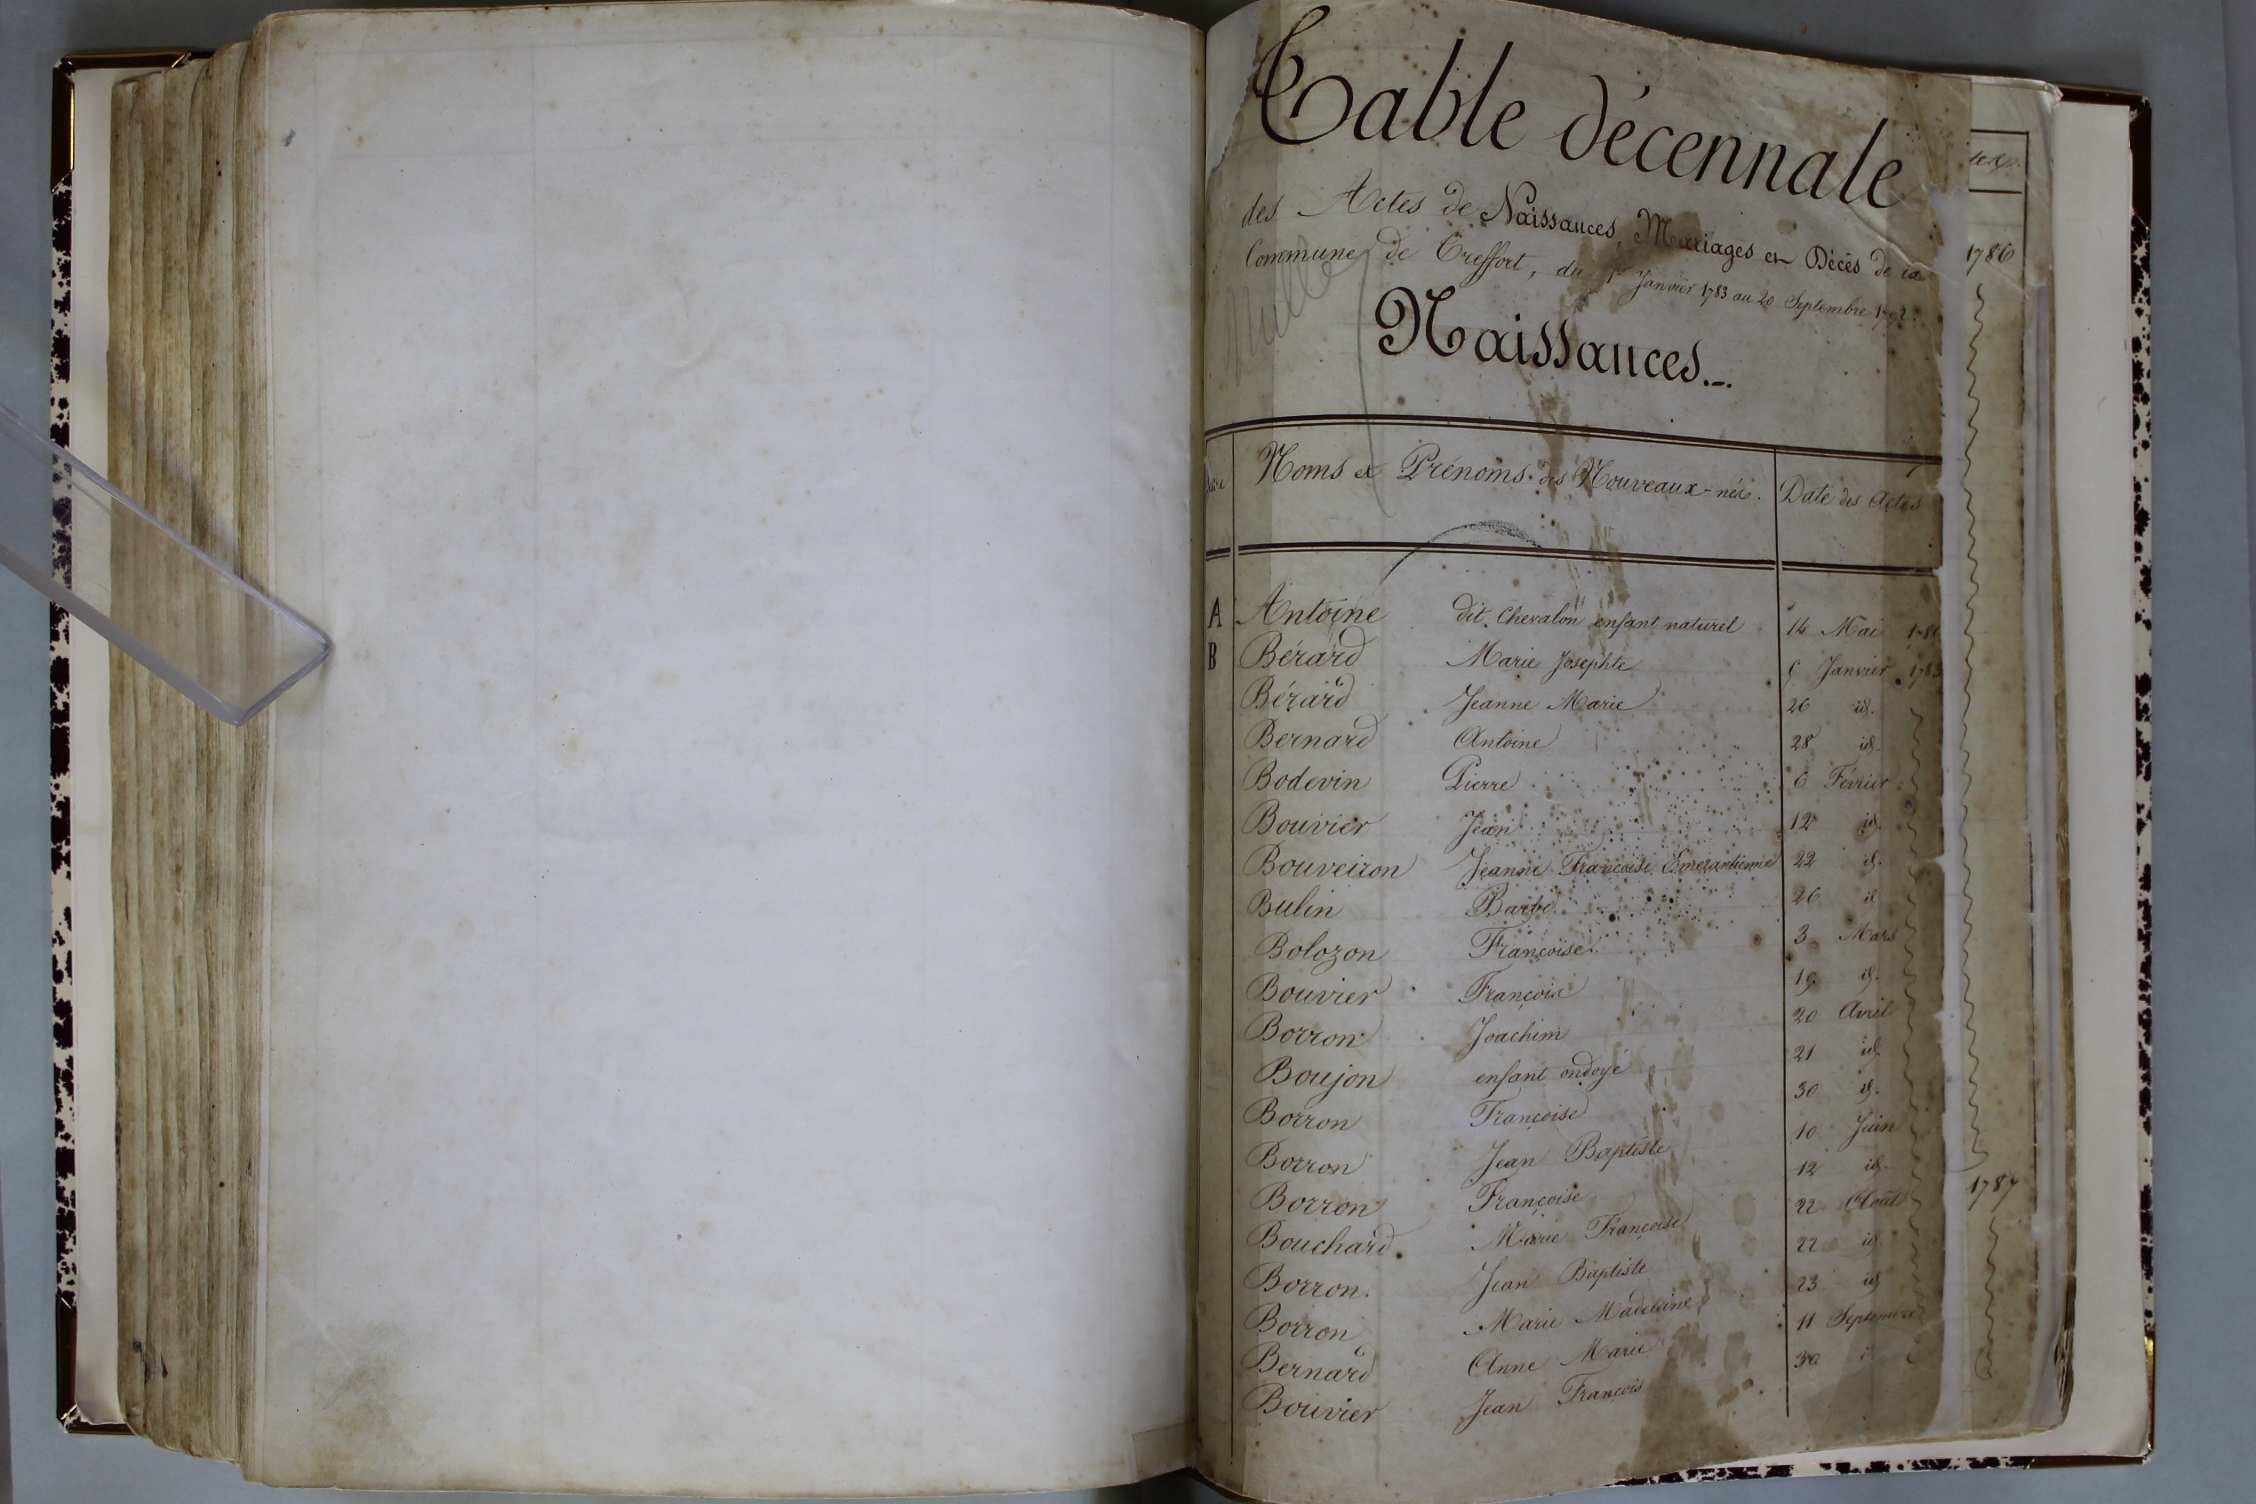 Table décennale
des Actes de Naissances, Mariages et Décès de la
Commune de Treffort, du 1er Janvier 1783 au 20 Septembre 1792.
Naissances.
Noms et Prénoms des Nouveaux-nés. Date des Actes
A Antoine dit Chevalon enfant naturel 14 Mai
B Bérard Marie Josephte Janvier 1783
Bérard Jeanne Marie 26 id.
Bernard Antoine 28 id.
Bodevin Pierre 6 Février
Bouvier Jean 12 id.
Bouveiron Jeanne Françoise Emerantienne 22 id.
Bulin Barbe 26 id
Bolozon Françoise 3 Mars
Bouvier François 19 id.
Borron Joachim 20 Avril
Boujon enfant ondoyé 21 id
Borron Françoise 30 id.
Borron Jean Baptiste 10 Juin
Borron Françoise 12 id.
Bouchard Marie Françoise 22 Août
Borron Jean Baptiste 22 id
Borron Marie Madeleine 23 id
Bernard Anne Marie 11 Septembre
Bouvier Jean François 30
1786
1787